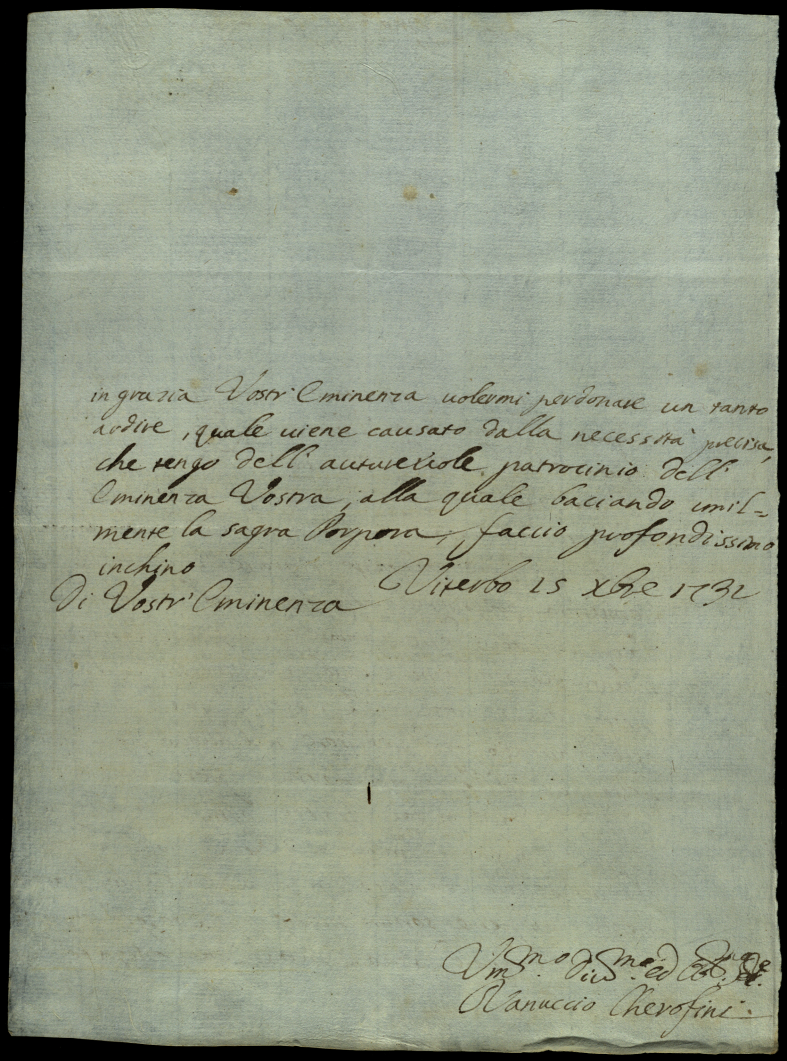 in grazia Vostr' Eminenza uolermi perdonare un tanto
ardire, quale uiene causato dalla necessità precisa,
che tengo dell' autoreuole patrocinio dell'
Eminenza Vostra, alla quale baciando umil=
mente la sagra Porpora, faccio profondissimo
inchino
Di Vostr' Eminenza Viterbo 15 Xbre 1731
Um.mo diu.mo ed
Ranuccio Cherofini